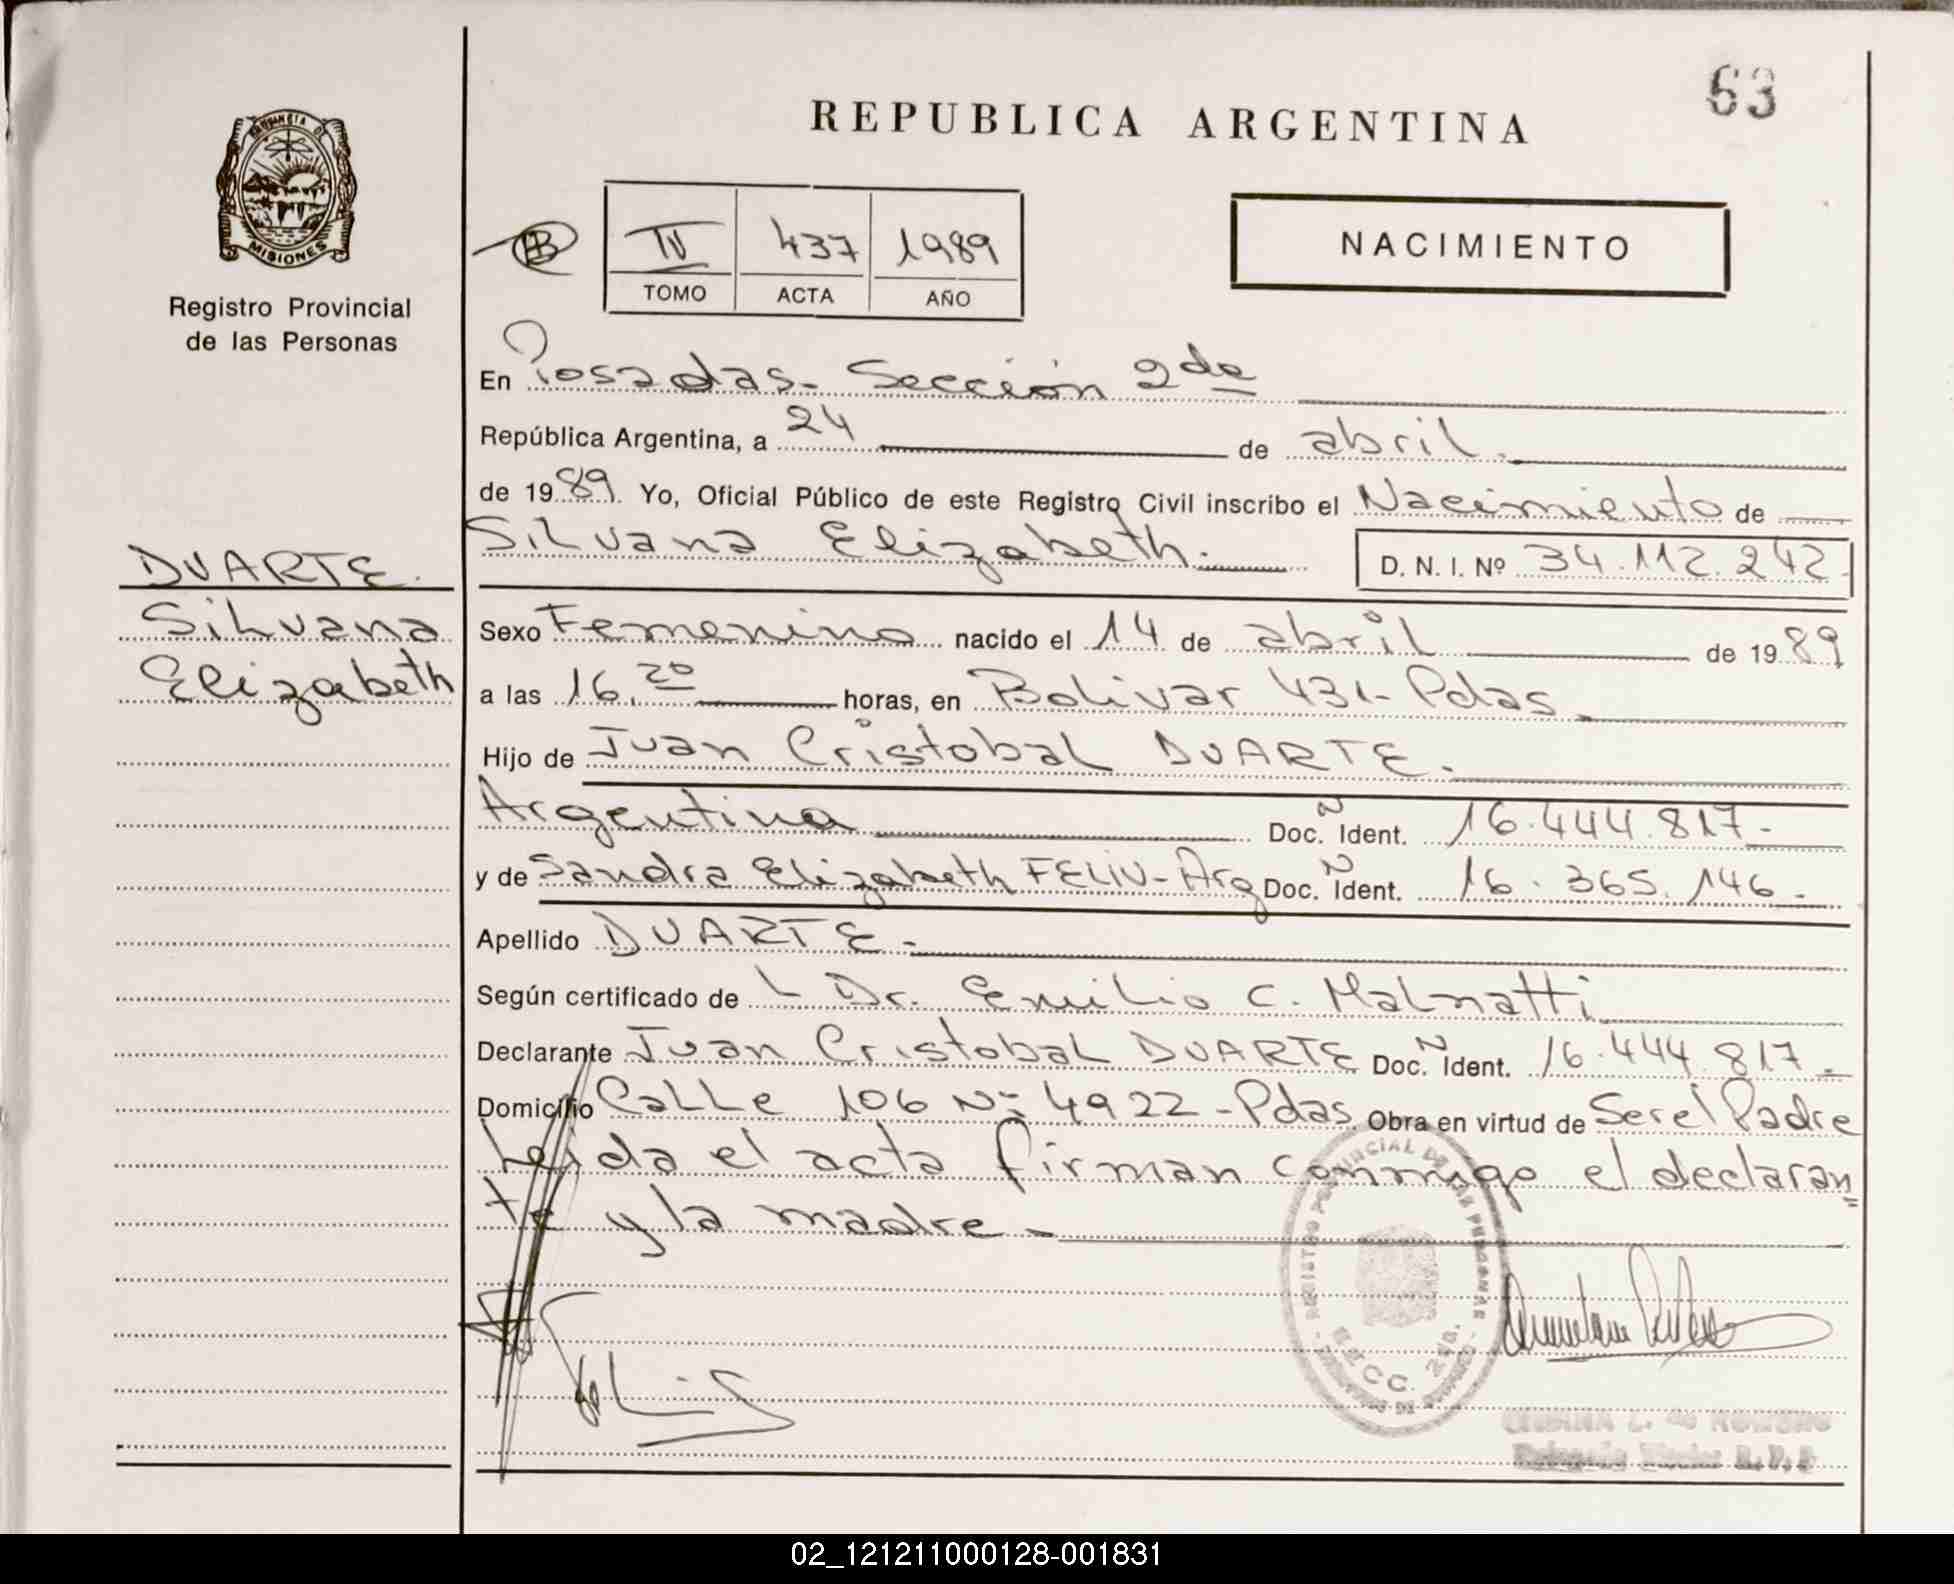 63
REPUBLICA ARGENTINA
PROVINCIA DE
MISIONES
Registro Provincial
de las Personas
IV 437 1989
TOMO ACTA AÑO
NACIMIENTO
En Posadas - Sección 2da
República Argentina, a 24 de abril.
de 1989. Yo, Oficial Público de este Registro Civil inscribo el Nacimiento de
Silvana Elizabeth. D. N. I. Nº 34.112.242
DUARTE.
Silvana
Elizabeth
Sexo Femenino nacido el 14 de abril de 1989
a las 16.20 horas, en Bolivar 431- Pdas.
Hijo de Juan Cristobal DUARTE.
Argentina Doc. N Ident. 16.444.817.-
y de Sandra Elizabeth FELIU - Arg Doc. N Ident. 16.365.146.-
Apellido DUARTE.-
Según certificado de L Dr. Emilio C. Malnatti
Declarante Juan Cristobal DUARTE Doc. N Ident. 16.444.817.-
Domicilio Calle 106 Nº 4922 - Pdas. Obra en virtud de Ser el Padre
Leida el acta firman conmigo el declaran
te y la madre.-
REGISTRO PROVINCIAL DE LAS PERSONAS
SECC. 2da.
02_121211000128-001831